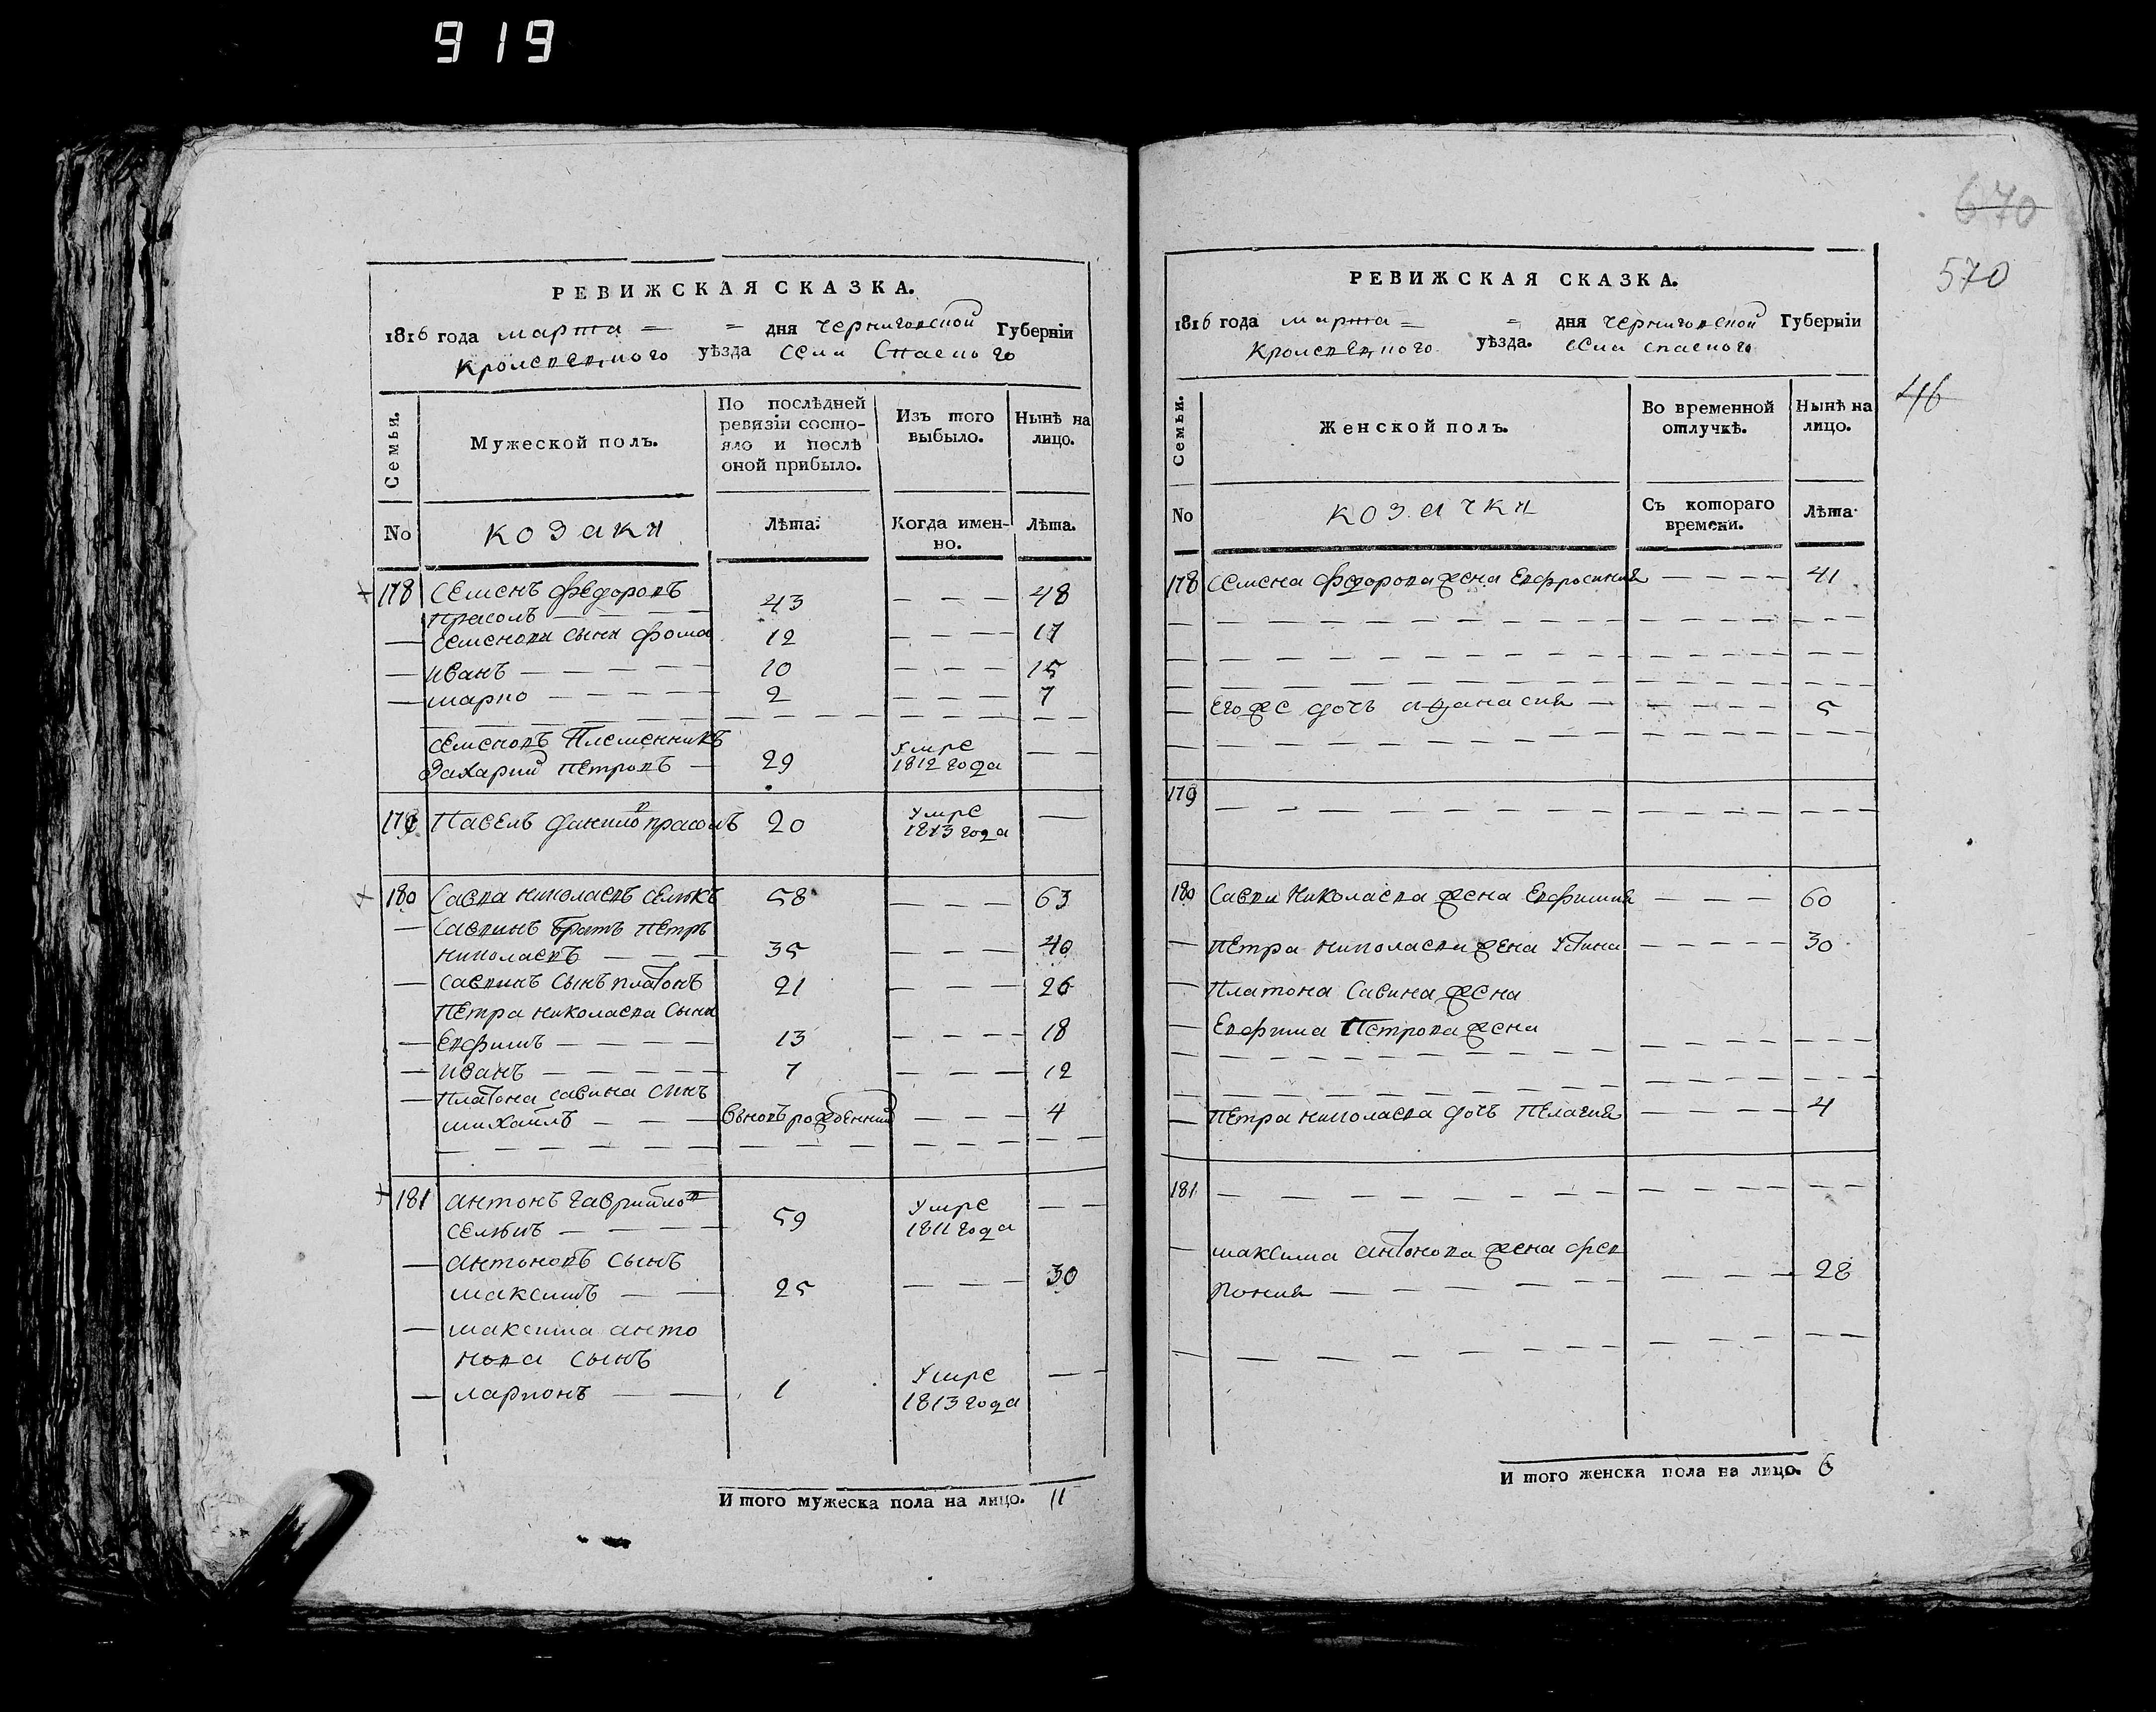 919
РЕВИЖСКАЯ СКАЗКА.
1816 года марта = = дня Черниговской Губерніи
Кролевецкого уѣзда села Спаского
Семьи.
Мужеской полъ.
По послѣдней
ревизіи состо-
яло и послѣ
оной прибыло.
Изъ того
выбыло.
Нынѣ на
лицо.
No
козаки
Лѣта.
Когда имен-
но.
Лѣта.
178 Семенъ Федоровъ
Прасолъ — — — 43 — — — 48
— Семенови сыни Фома 12 — — — 17
— Иванъ — — — — 10 — — — 15
— Марко — — — — 2 — — — 7
Семеновъ Племенникъ
Захарий Петровъ — 29 умре 1812 года — —
179 Павелъ Данилов Прасолъ 20 умре 1813 года —
180 Савва Николаевъ Селюкъ 58 — — — 63
— Саввинъ братъ Петръ
Николаевъ — — — 35 — — — 40
— Саввинъ сынъ Платонъ 21 — — — 26
Петра Николаева сыни
— Евфимъ — — — — 13 — — — 18
— Иванъ — — — — 7 — — — 12
— Платона Савина синъ
Михаилъ — — — вновъ рожденний — — — 4
181 Антонъ Гаврилов
Селюкъ — — — — 59 умре 1811 года — —
— Антоновъ сынъ
Максимъ — — 25 — — — 30
— Максима Анто
нова сынъ
— Ларионъ — — 1 умре 1813 года — —
И того мужеска пола на лицо. 11
670
570
46
РЕВИЖСКАЯ СКАЗКА.
1816 года марта = = дня Черниговской Губерніи
Кролевецкого уѣзда. села Спаского
Семьи.
Женской полъ.
Во временной
отлучкѣ.
Нынѣ на
лицо.
No
козачки
Съ котораго
времени.
Лѣта.
178 Семена Федорова жена Евфросиния — — — — 41
— Его же дочь Афанасия — — — — — 5
179
180 Савви Николаева жена Евфимия — — — 60
— Петра Николаева жена Устина — — — — — 30
— Платона Савина жена
— Евфима Петрова жена
— Петра Николаева дочь Пелагия — — — — 4
181
— Максима Антонова жена Фев
рония — — — — — — — — 28
И того женска пола на лицо. 6